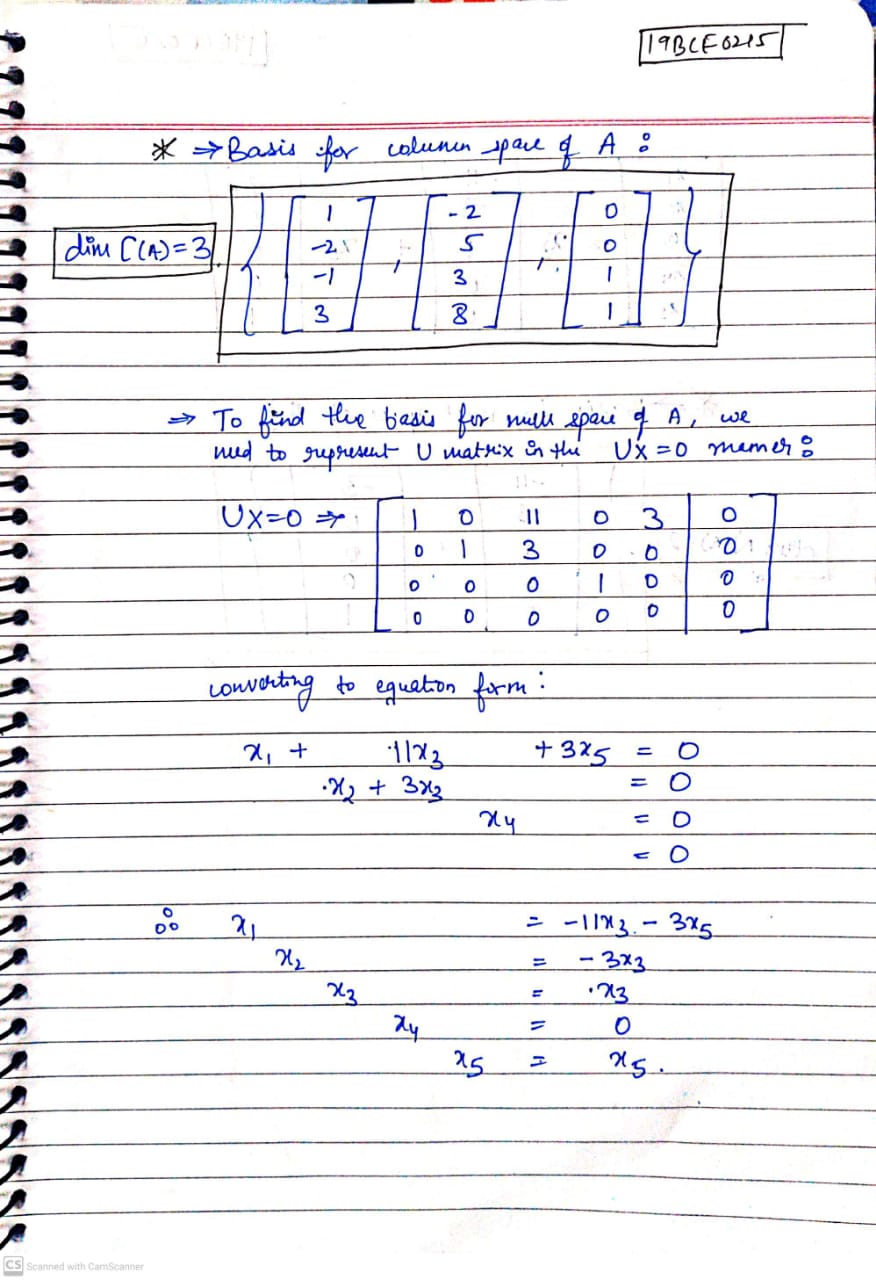 19BCE0215
* ⇒ Basis for column space of A :
dim C(A) = 3. { [ 1 -2 -1 3 ] , [ -2 5 3 8 ] , [ 0 0 1 1 ] }
⇒ To find the basis for null space of A, we
need to represent U matrix in the UX = 0 manner :
UX=0 ⇒ [ 1 0 11 0 3 | 0
0 1 3 0 0 | 0
0 0 0 1 0 | 0
0 0 0 0 0 | 0 ]
converting to equation form :
x₁ + 11x₃ + 3x₅ = 0
x₂ + 3x₃ = 0
x₄ = 0
= 0
∴ x₁ = -11x₃ - 3x₅
x₂ = -3x₃
x₃ = x₃
x₄ = 0
x₅ = x₅.
CS Scanned with CamScanner